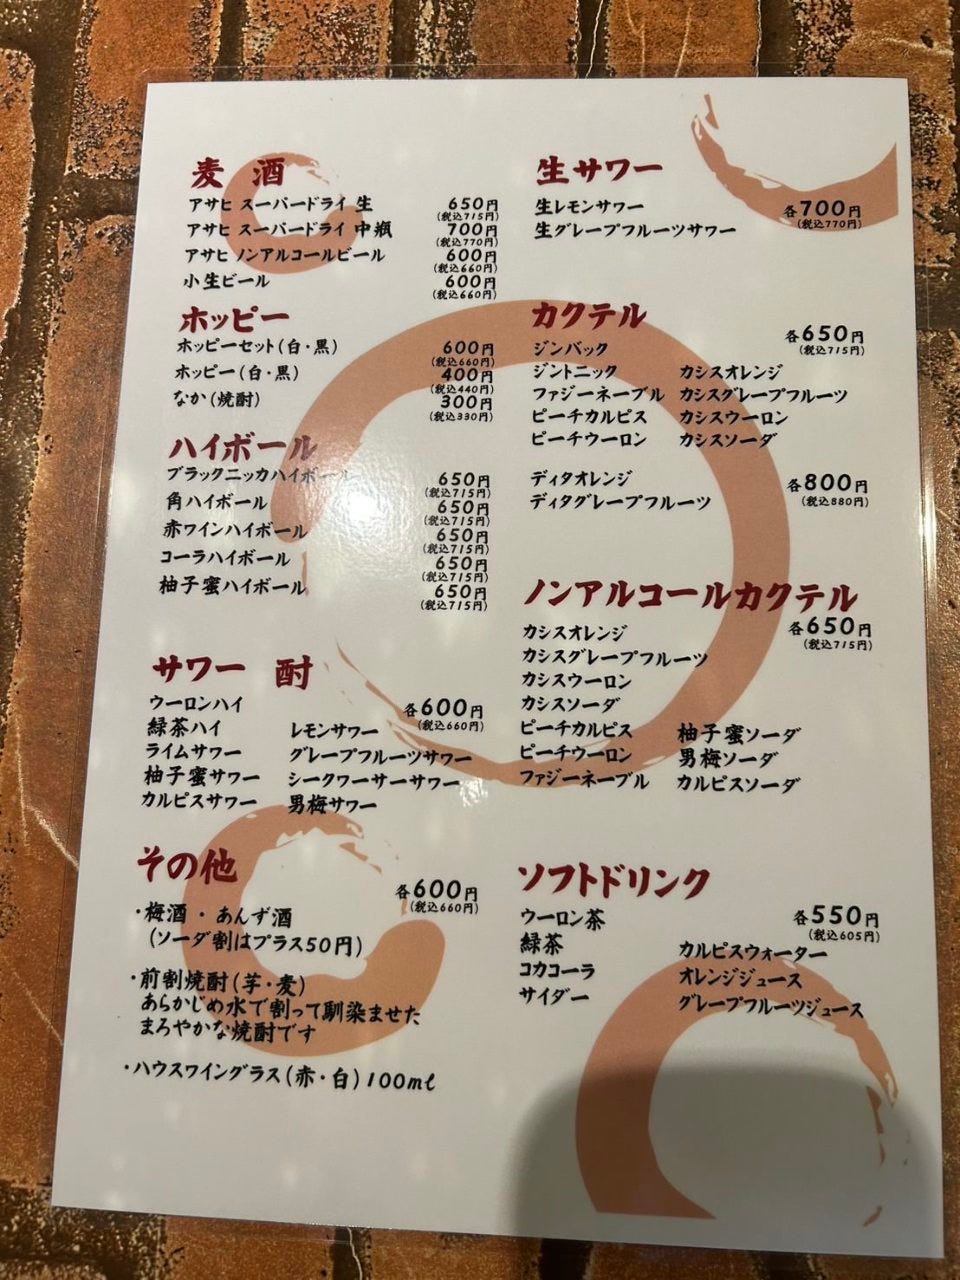 麦 酒
アサヒ スーパードライ 生 650円
(税込715円)
アサヒ スーパードライ 中瓶 700円
(税込770円)
アサヒ ノンアルコールビール 600円
(税込660円)
小生ビール 600円
(税込660円)
ホッピー
ホッピーセット(白・黒) 600円
(税込660円)
ホッピー(白・黒) 400円
(税込440円)
なか(焼酎) 300円
(税込330円)
ハイボール
ブラックニッカハイボール 650円
(税込715円)
角ハイボール 650円
(税込715円)
赤ワインハイボール 650円
(税込715円)
コーラハイボール 650円
(税込715円)
柚子蜜ハイボール 650円
(税込715円)
サワー 酎
各600円
(税込660円)
ウーロンハイ
緑茶ハイ レモンサワー
ライムサワー グレープフルーツサワー
柚子蜜サワー シークワーサーサワー
カルピスサワー 男梅サワー
その他
各600円
(税込660円)
・梅酒・あんず酒
(ソーダ割はプラス50円)
・前割焼酎(芋・麦)
あらかじめ水で割って馴染ませた
まろやかな焼酎です
・ハウスワイングラス(赤・白)100ml
生サワー
生レモンサワー 各700円
(税込770円)
生グレープフルーツサワー
カクテル
各650円
(税込715円)
ジンバック
ジントニック カシスオレンジ
ファジーネーブル カシスグレープフルーツ
ピーチカルピス カシスウーロン
ピーチウーロン カシスソーダ
ディタオレンジ 各800円
(税込880円)
ディタグレープフルーツ
ノンアルコールカクテル
各650円
(税込715円)
カシスオレンジ
カシスグレープフルーツ
カシスウーロン
カシスソーダ
ピーチカルピス 柚子蜜ソーダ
ピーチウーロン 男梅ソーダ
ファジーネーブル カルピスソーダ
ソフトドリンク
各550円
(税込605円)
ウーロン茶
緑茶 カルピスウォーター
コカコーラ オレンジジュース
サイダー グレープフルーツジュース